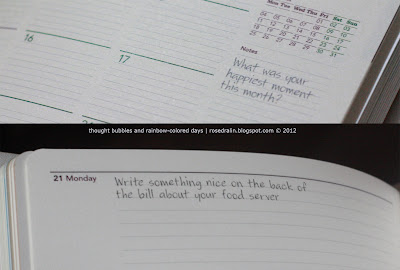 Mon Tue Wed Thu Fri Sat Sun
16
17
Notes
What was your
happiest moment
this month?
thought bubbles and rainbow-colored days | rosedralin.blogspot.com © 2012
21 Monday
Write something nice on the back of
the bill about your food server